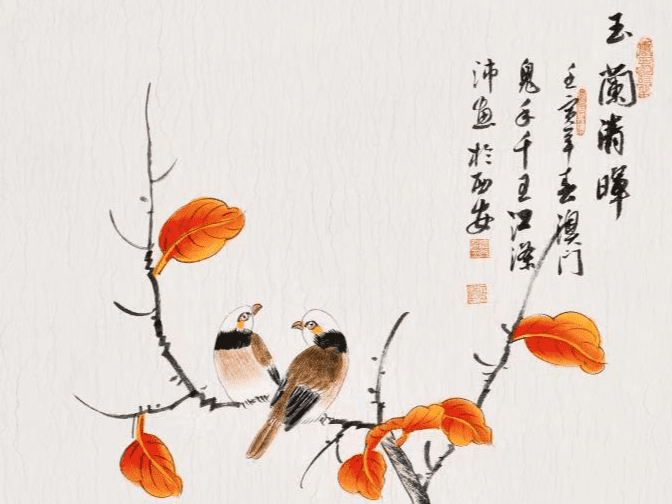 玉蘭清暉
壬寅年春澳门
鬼手千王江深
沛画於西安